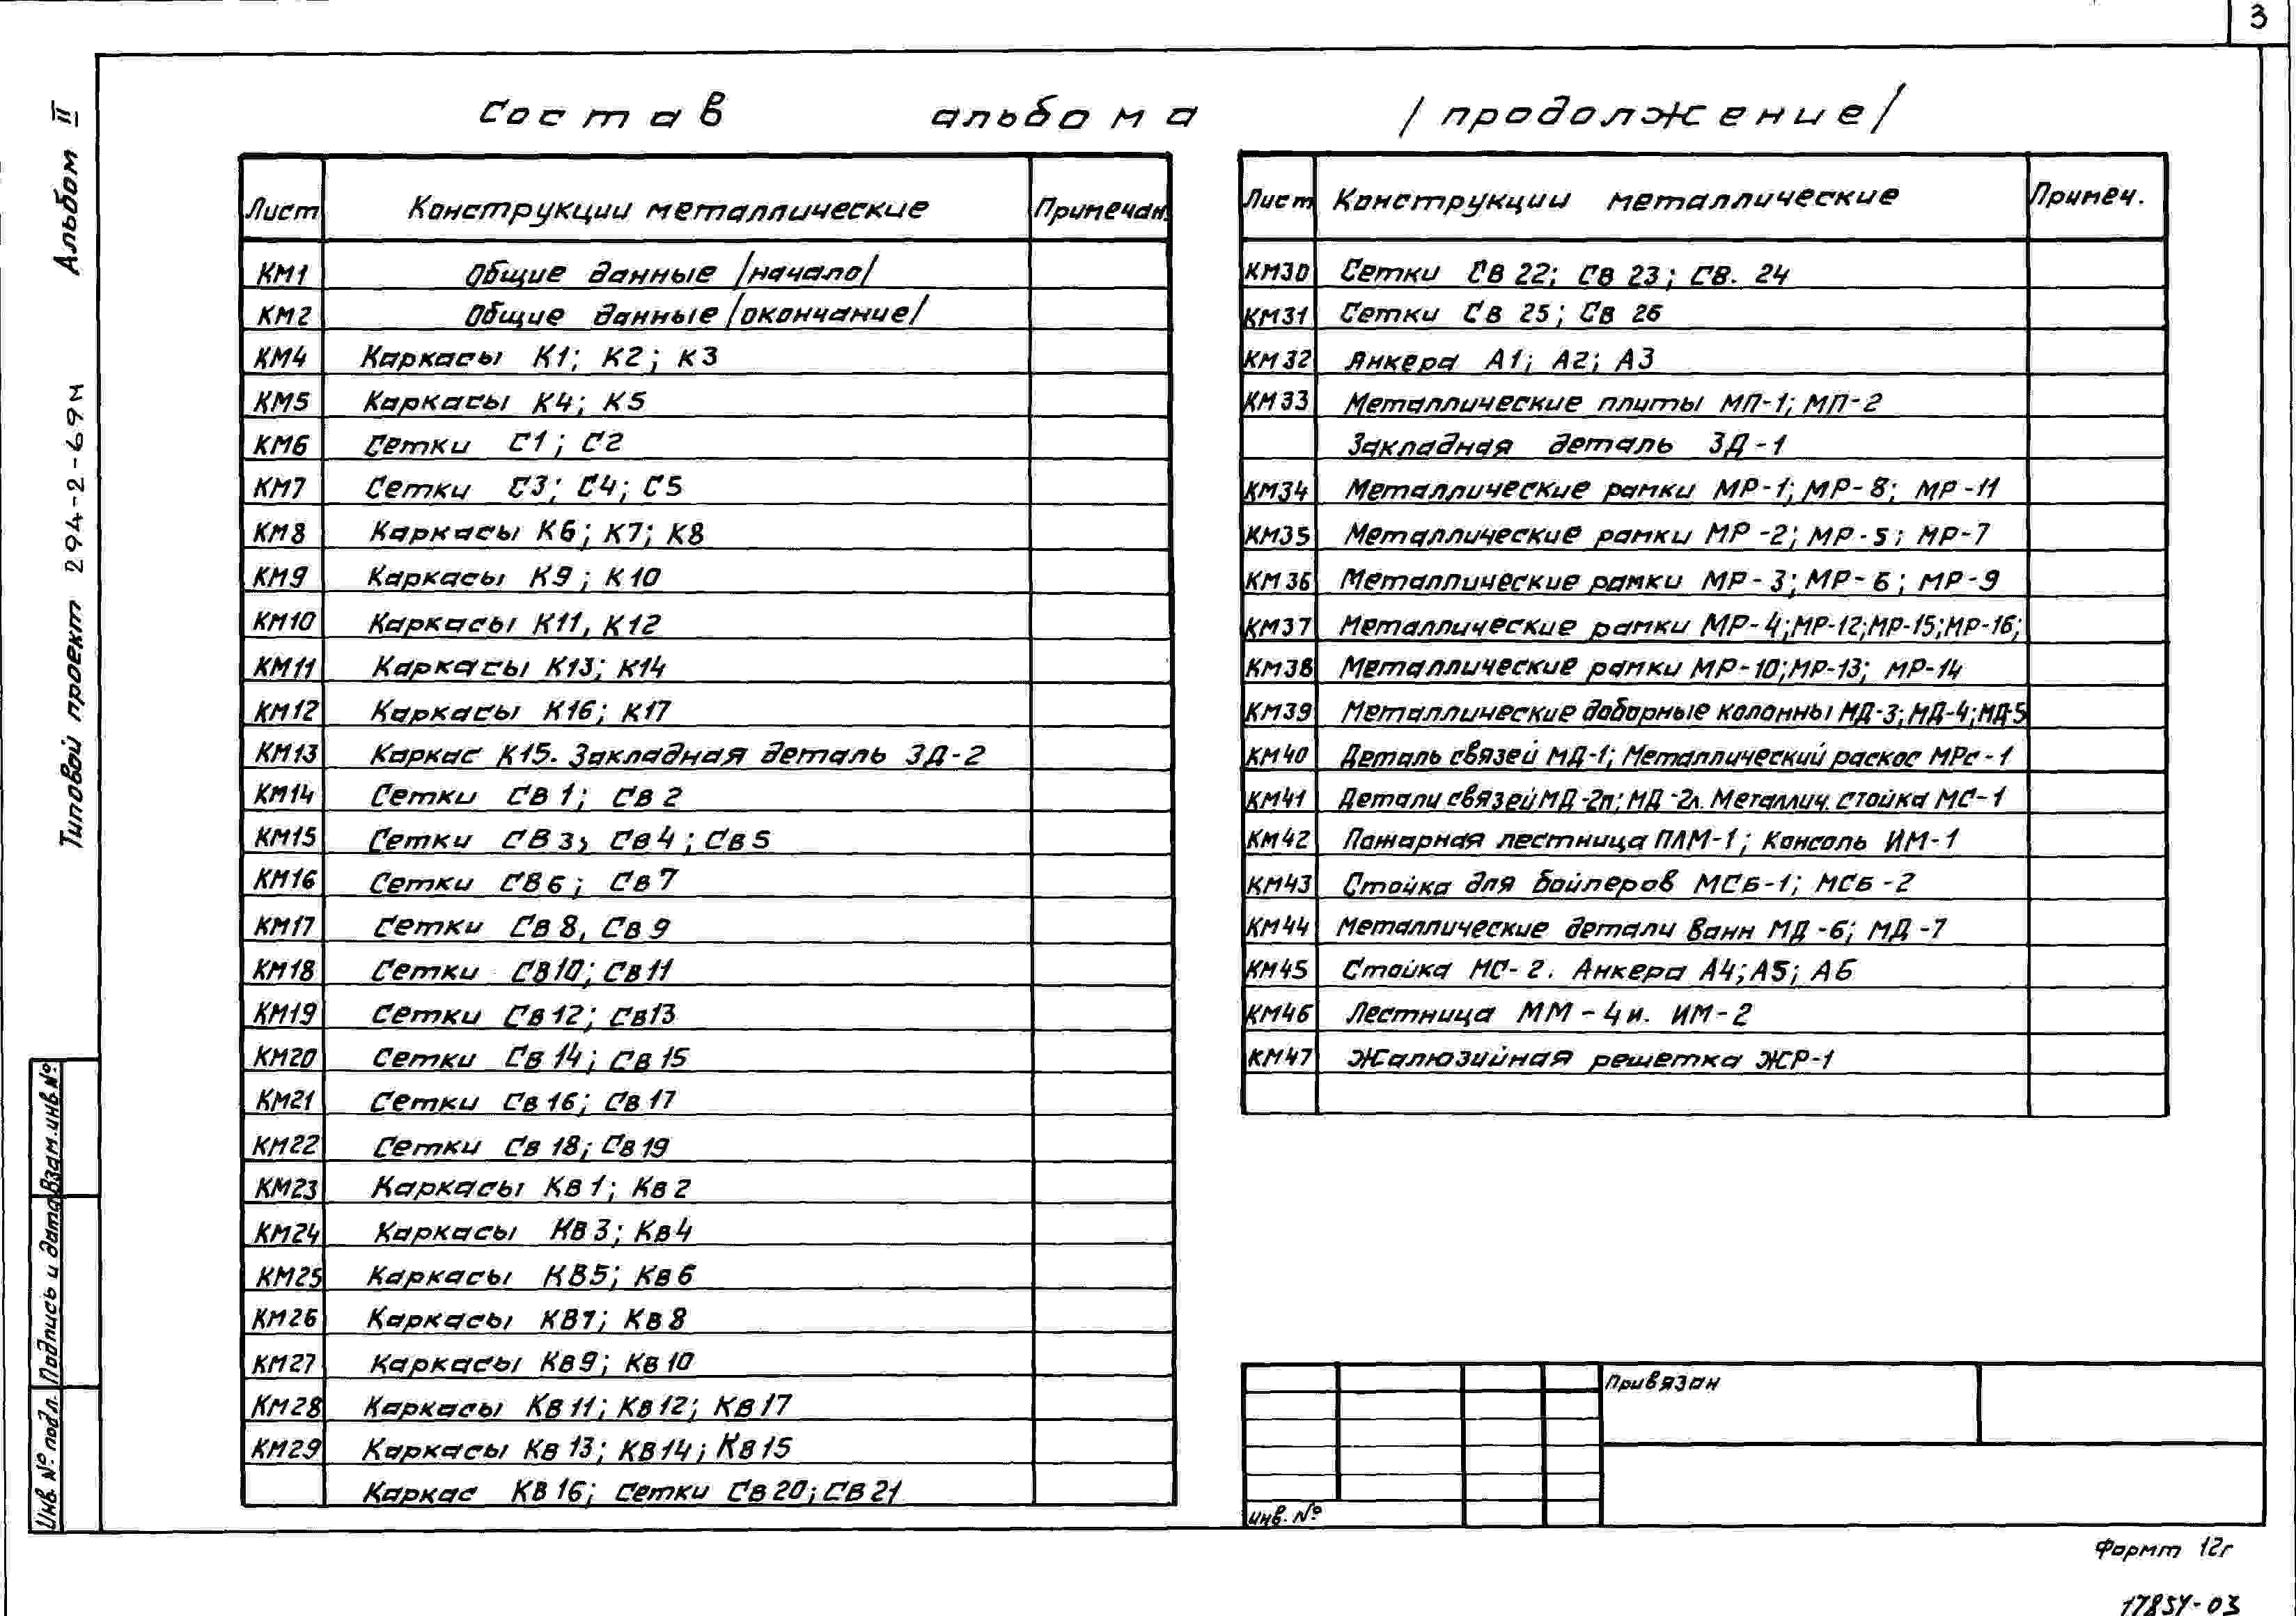 3
Состав альбома /продолжение/
Альбом II
Типовой проект 294-2-69м
Лист Конструкции металлические Примечан.
КМ1 Общие данные /начало/
КМ2 Общие данные /окончание/
КМ4 Каркасы К1; К2; К3
КМ5 Каркасы К4; К5
КМ6 Сетки С1; С2
КМ7 Сетки С3; С4; С5
КМ8 Каркасы К6; К7; К8
КМ9 Каркасы К9; К10
КМ10 Каркасы К11, К12
КМ11 Каркасы К13; К14
КМ12 Каркасы К16; К17
КМ13 Каркас К15. Закладная деталь ЗД-2
КМ14 Сетки СВ1; СВ2
КМ15 Сетки СВ3, СВ4; СВ5
КМ16 Сетки СВ6; СВ7
КМ17 Сетки СВ8, СВ9
КМ18 Сетки СВ10; СВ11
КМ19 Сетки СВ12; СВ13
КМ20 Сетки СВ14; СВ15
КМ21 Сетки СВ16; СВ17
КМ22 Сетки СВ18; СВ19
КМ23 Каркасы КВ1; КВ2
КМ24 Каркасы КВ3; КВ4
КМ25 Каркасы КВ5; КВ6
КМ26 Каркасы КВ7; КВ8
КМ27 Каркасы КВ9; КВ10
КМ28 Каркасы КВ11; КВ12; КВ17
КМ29 Каркасы КВ13; КВ14; КВ15
Каркас КВ16; сетки СВ20; СВ21
Лист Конструкции металлические Примеч.
КМ30 Сетки СВ22; СВ23; СВ. 24
КМ31 Сетки СВ25; СВ26
КМ32 Анкера А1; А2; А3
КМ33 Металлические плиты МП-1; МП-2
Закладная деталь ЗД-1
КМ34 Металлические рамки МР-1; МР-8; МР-11
КМ35 Металлические рамки МР-2; МР-5; МР-7
КМ36 Металлические рамки МР-3; МР-6; МР-9
КМ37 Металлические рамки МР-4; МР-12; МР-15; МР-16;
КМ38 Металлические рамки МР-10; МР-13; МР-14
КМ39 Металлические доборные колонны МД-3; МД-4; МД-5
КМ40 Деталь связей МД-1; Металлический раскос МРс-1
КМ41 Детали связей МД-2п; МД-2л. Металлич. стойка МС-1
КМ42 Пожарная лестница ПЛМ-1; Консоль ИМ-1
КМ43 Стойка для бойлеров МСБ-1; МСБ-2
КМ44 Металлические детали ванн МД-6; МД-7
КМ45 Стойка МС-2. Анкера А4; А5; А6
КМ46 Лестница ММ-4и. ИМ-2
КМ47 Жалюзийная решетка ЖР-1
Привязан
Инв. №
Взам. инв. №
Подпись и дата
Инв. № подл.
Формт 12г
1785У-03